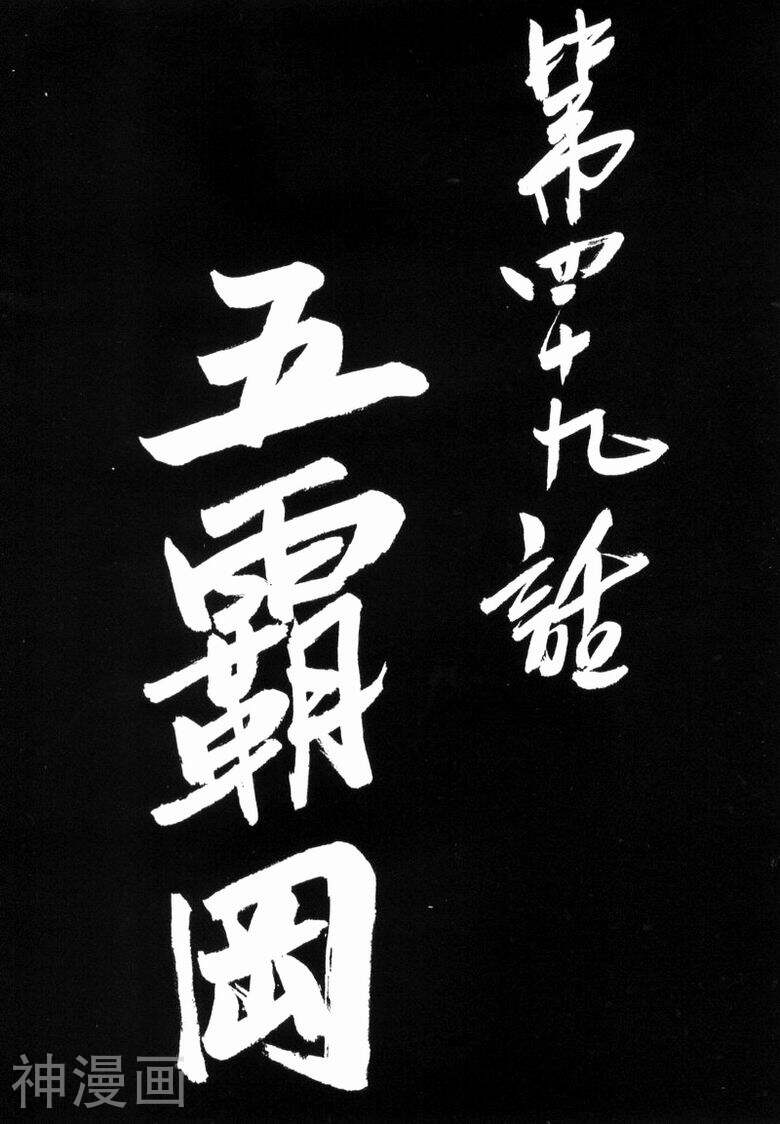 第四十九話
五霸岡
神漫画